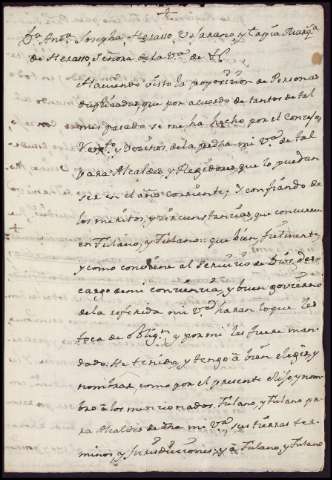 Dª Antª Josepha Hurtado
de Señora de la vª de
Haviendo visto la proposicion de Personas
duplicadas que por acuerdo de tantos de tal
mes pasado se me ha hecho por el Concejo
y Vecinos de la dha mi vª de tal
para Alcaldes y Regidores que lo puedan
ser en el año corriente, y confiando de
los meritos, y circunstancias que concurren
en Fulano, y Fulano: que bien, fielmente,
y como combiene al servicio de Dios, des
cargo de mi conciencia, y buen govierno
de la referida mi vª haran lo que les
toca de obligⁿ y por mi les fuere man
dado. He tenido, y tengo á bien elegir, y
nombrar, como por el presente elijo, y nom
bro á los mencionados Fulano, y Fulano pa
ra Alcaldes de dha mi vª sus tierras ter
minos, y jurisdicciones, y á Fulano, y Fulano